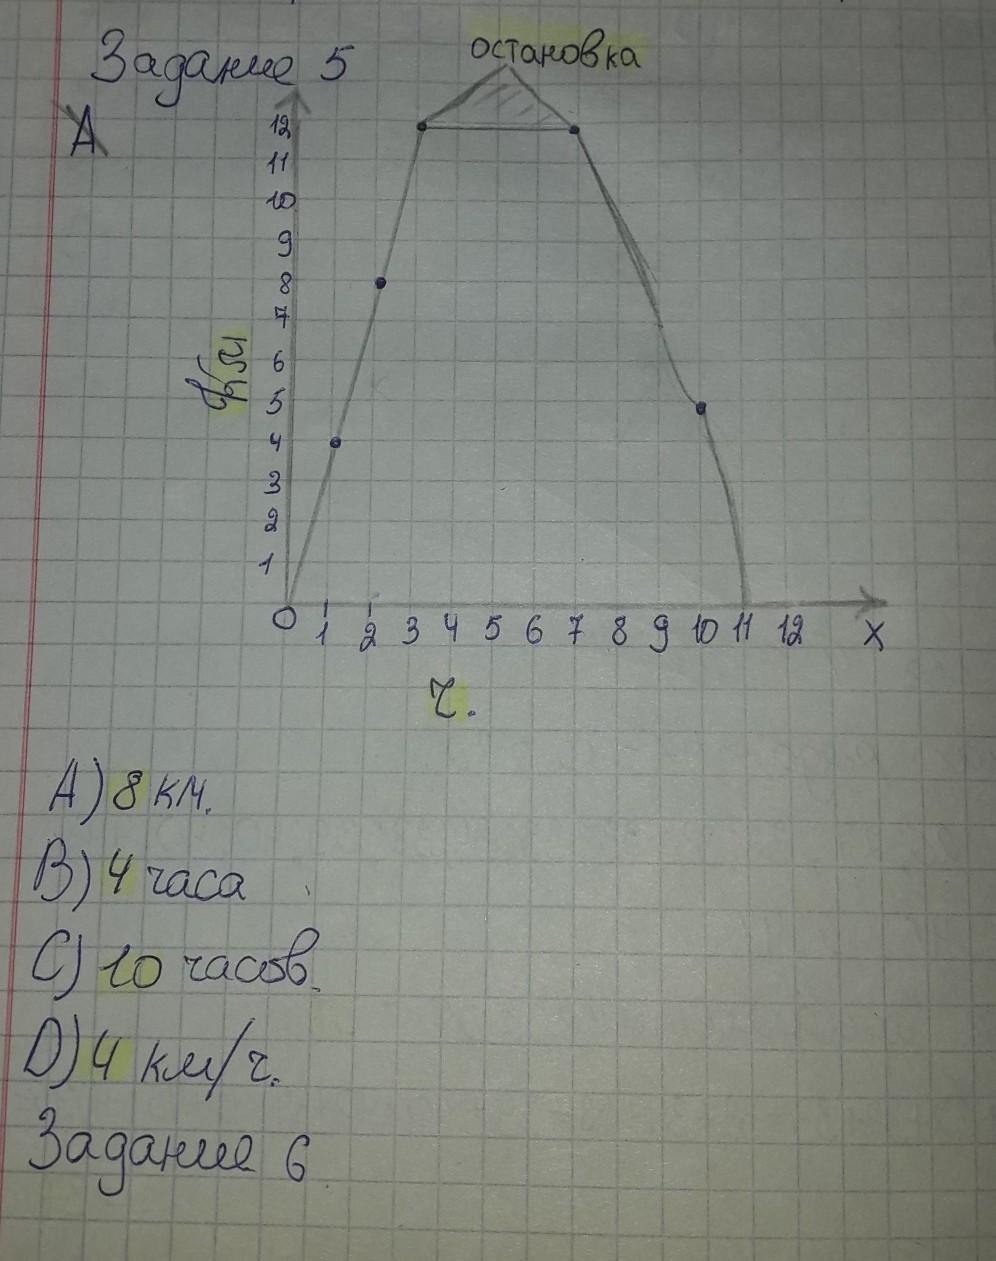 Задание 5
остановка
А
12
11
10
9
8
7
6
5
4
3
2
1
км
0 1 2 3 4 5 6 7 8 9 10 11 12 x
ч.
A) 8 км.
B) 4 часа
C) 10 часов.
D) 4 км/ч.
Задание 6